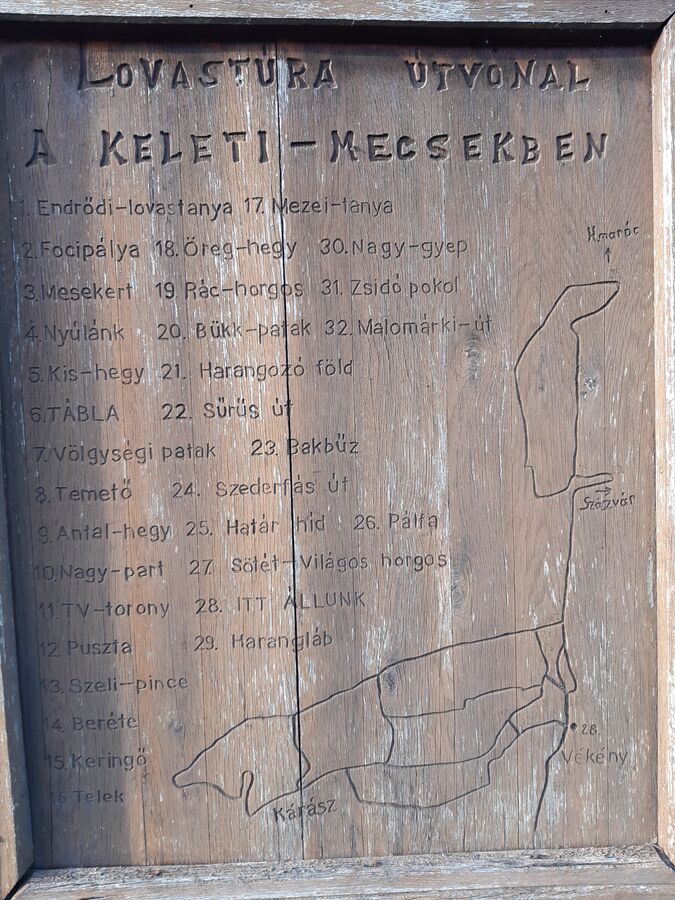 LOVASTÚRA ÚTVONAL
A KELETI-MECSEKBEN
1. Endrődi-lovastanya 17. Mezei-tanya
2. Focipálya 18. Öreg-hegy 30. Nagy-gyep
3. Mesekert 19. Rác-horgos 31. Zsidó pokol
4. Nyúlánk 20. Bükk-patak 32. Malomárki-út
5. Kis-hegy 21. Harangozó föld
6. TÁBLA 22. Sűrűs út
7. Völgységi patak 23. Bakbűz
8. Temető 24. Szederfás út
9. Antal-hegy 25. Határ híd 26. Pálfa
10. Nagy-part 27. Sötét-Világos horgos
11. TV-torony 28. ITT ÁLLUNK
12. Puszta 29. Harangláb
13. Szeli-pince
14. Beréte
15. Keringő
16 Telek
Hmaróc
Szászvár
28.
Vékény
Kárász